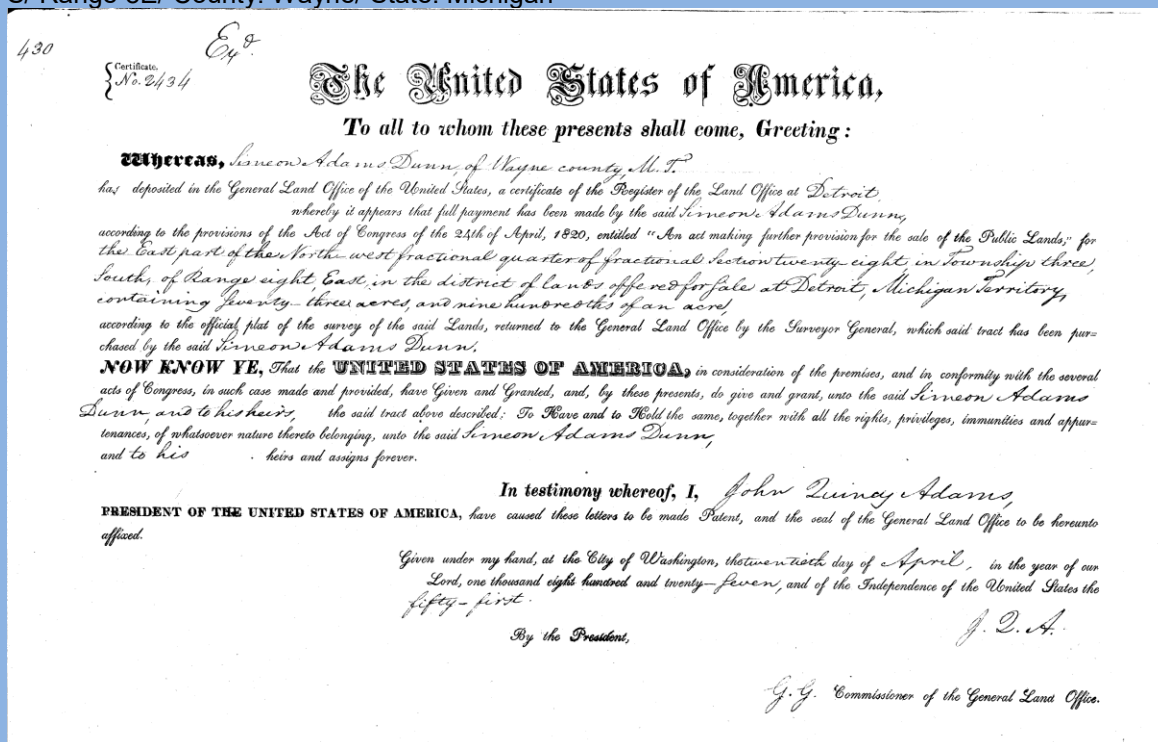 S/ Range 8E/ County: Wayne/ State: Michigan
430
Exd.
Certificate.
No. 2434
The United States of America,
To all to whom these presents shall come, Greeting:
Whereas, Simeon Adams Dunn, of Wayne county, M. T.
has deposited in the General Land Office of the United States, a certificate of the Register of the Land Office at Detroit
whereby it appears that full payment has been made by the said Simeon Adams Dunn,
according to the provisions of the Act of Congress of the 24th of April, 1820, entitled "An act making further provision for the sale of the Public Lands;" for
the East part of the North west fractional quarter of fractional Section twenty eight in Township three,
South, of Range eight, East, in the district of lands offered for sale at Detroit, Michigan Territory,
containing seventy-three acres, and nine hundredths of an acre,
according to the official plat of the survey of the said Lands, returned to the General Land Office by the Surveyor General, which said tract has been pur=
chased by the said Simeon Adams Dunn.
NOW KNOW YE, That the UNITED STATES OF AMERICA, in consideration of the premises, and in conformity with the several
acts of Congress, in such case made and provided, have Given and Granted, and, by these presents, do give and grant, unto the said Simeon Adams
Dunn, and to his heirs, the said tract above described: To Have and to Hold the same, together with all the rights, privileges, immunities and appur=
tenances, of whatsoever nature thereto belonging, unto the said Simeon Adams Dunn,
and to his heirs and assigns forever.
In testimony whereof, I, John Quincy Adams,
PRESIDENT OF THE UNITED STATES OF AMERICA, have caused these letters to be made Patent, and the seal of the General Land Office to be hereunto
affixed.
Given under my hand, at the City of Washington, the twentieth day of April, in the year of our
Lord, one thousand eight hundred and twenty-seven, and of the Independence of the United States the
fifty-first.
By the President,
J. Q. A.
G. G. Commissioner of the General Land Office.